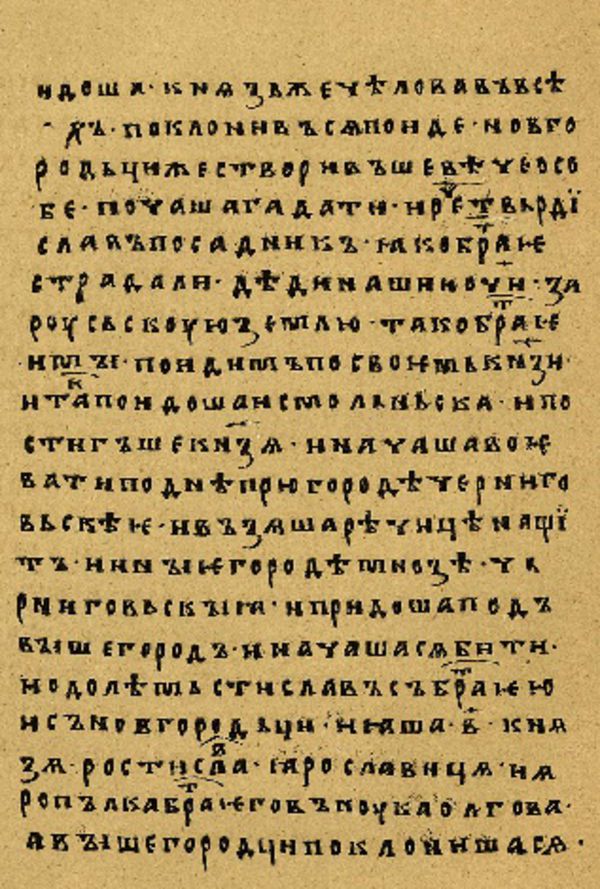 идоша · кнѧзь же чѣловавъ всѣ
хъ · поклонивъсѧ поиде · новго
родьци же створивъше вѣче о со
бе · почаша гадати · и рече твьрди
славъ посадникъ · ꙗко братиѥ
страдали дѣди наши и очьи · за
роусьскоую землю · тако братиѥ
и мъи · поидимъ по своѥмь кнѧзи ·
и тако поидоша и смольньска · и по
стигъше кнѧзѧ · и начаша воѥ
вати по днѣпрю городѣ черниго
вьскъіѥ · и възѧша рѣчичѣ на щі
тъ · и инъіѥ городѣ мнозѣ · че
рниговьскъіꙗ · и придоша подъ
въішегородъ · и начаша сѧ бити ·
и одолѣ мьстиславъ съ братиѥю
и съ новгородьци · и ꙗша · в҃ · кнѧ
зѧ · ростислава · ꙗрославицѧ · и ꙗ
ропълка братиѥго въноука олгова ·
а въішегородци поклонишасѧ ·